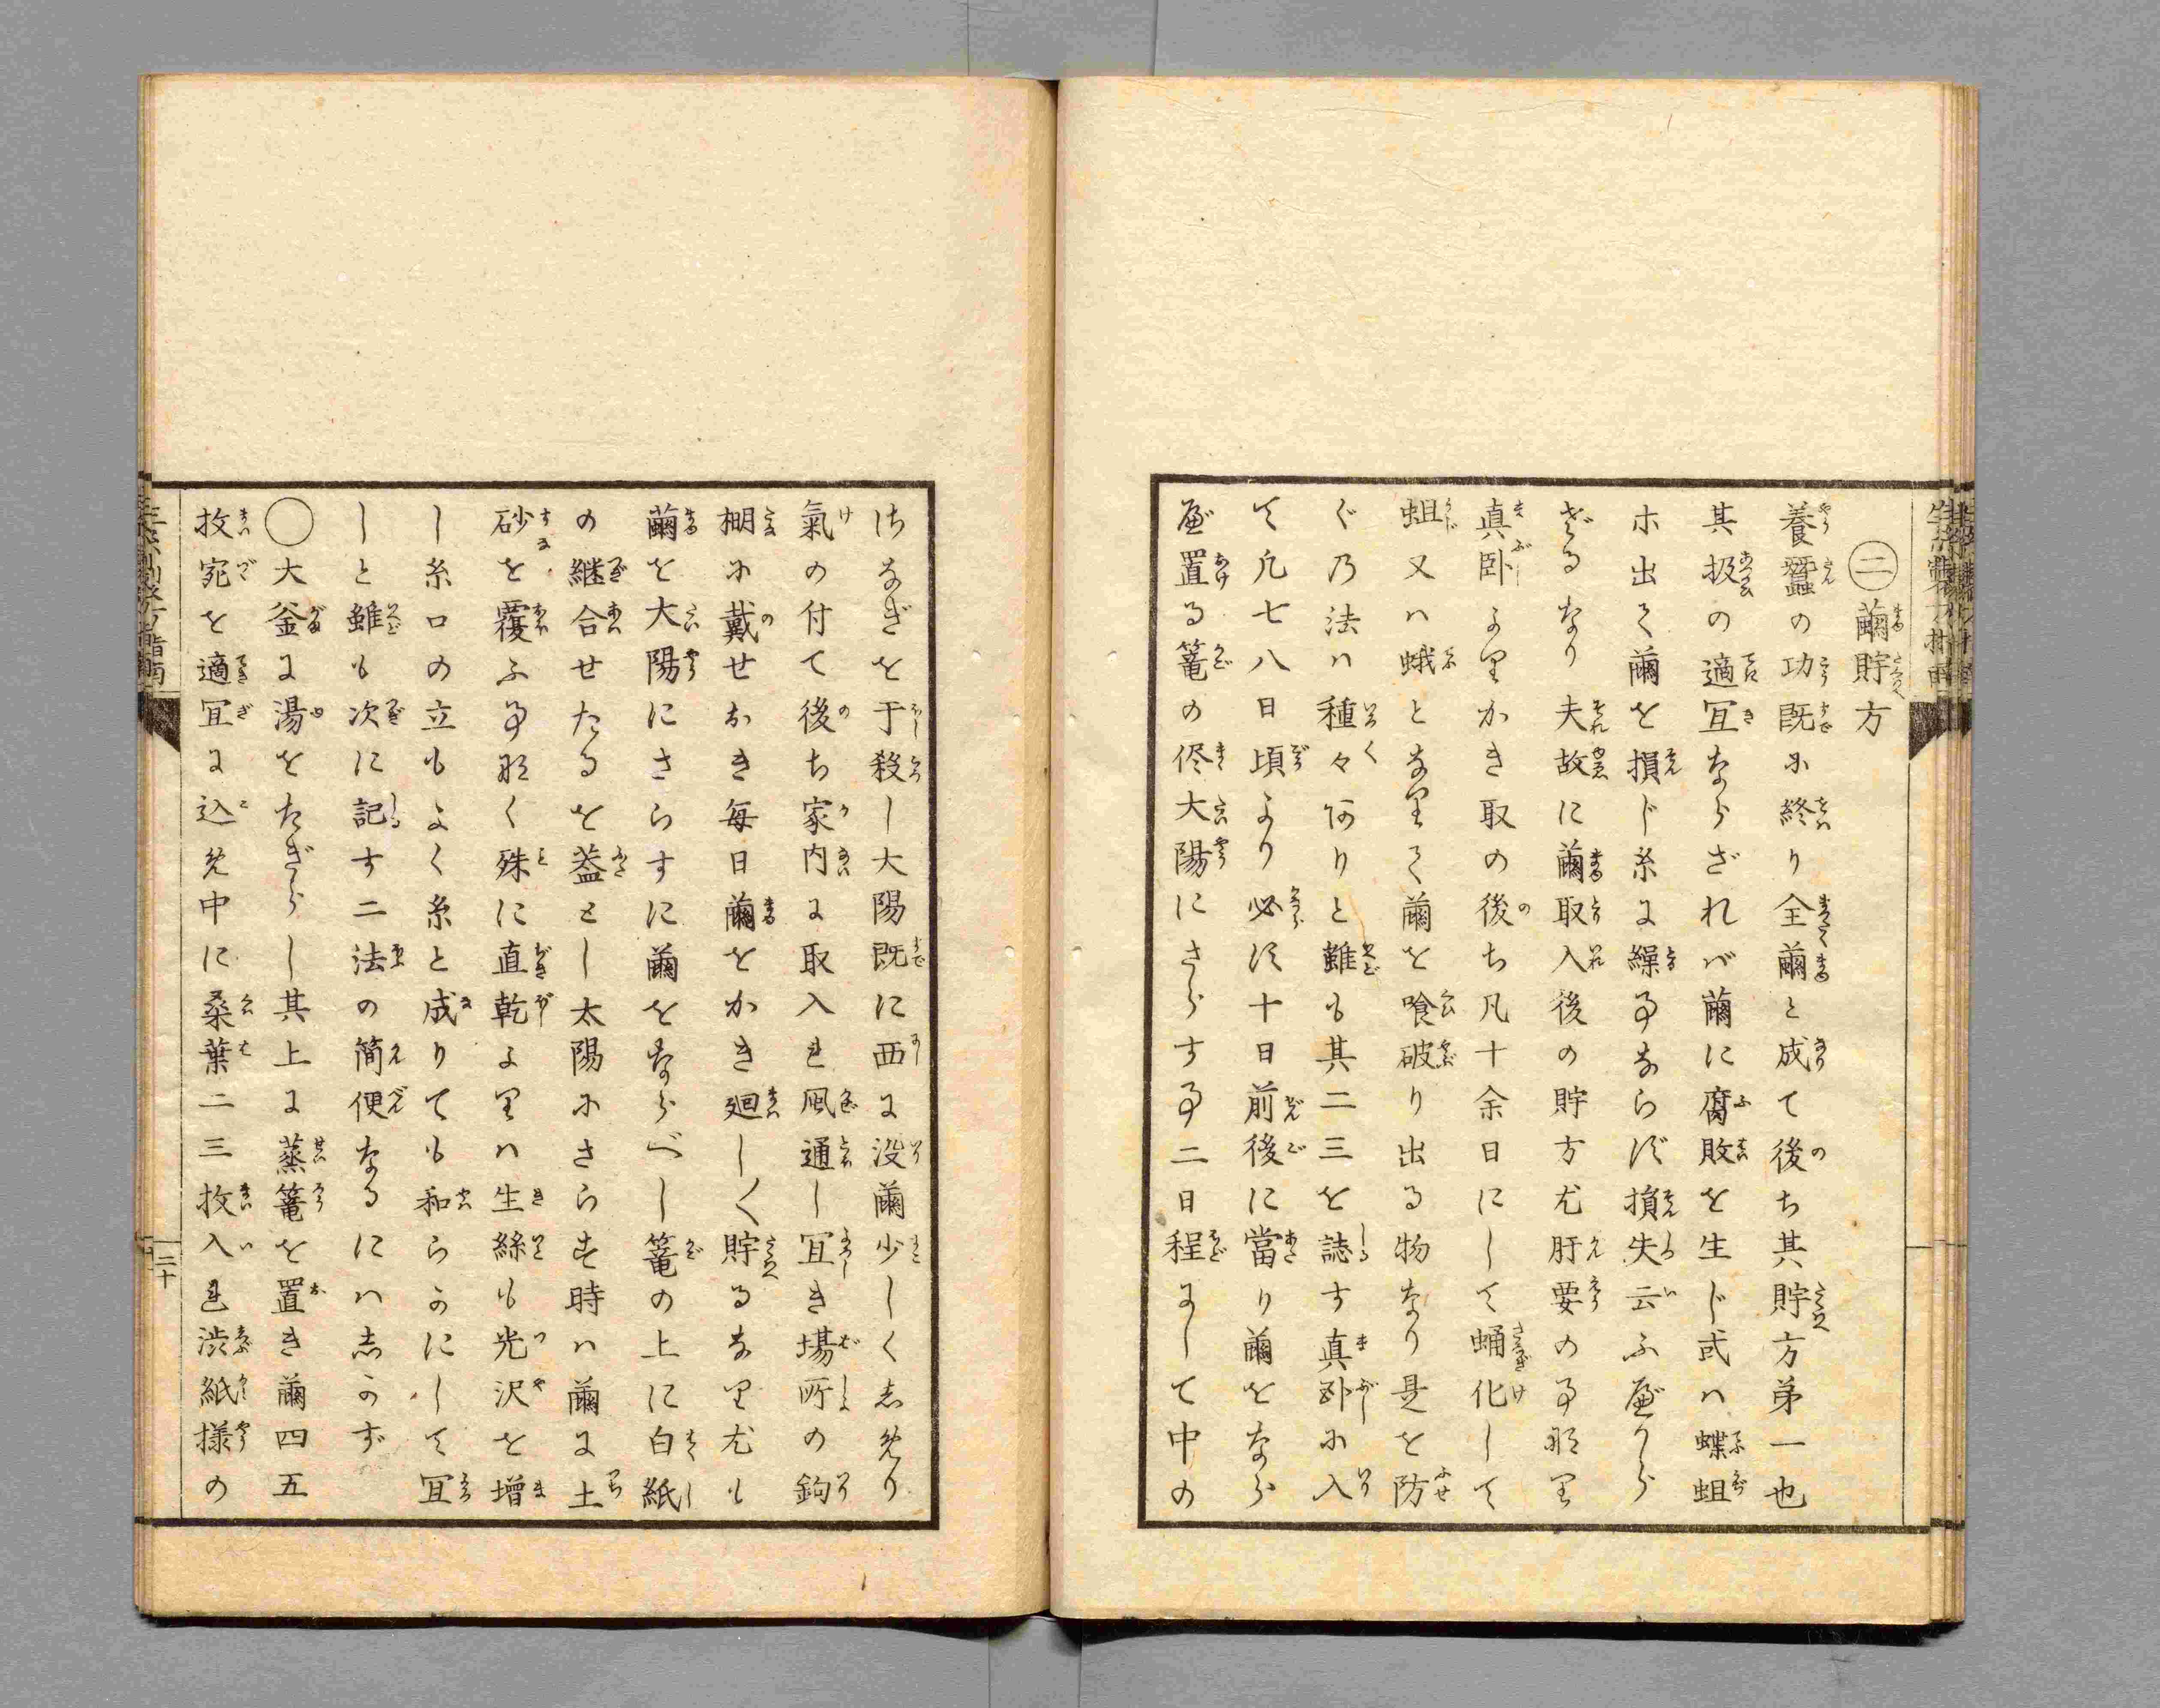 ㊁繭貯方
養蠶の功既に終り全繭と成て後ち其貯方第一也
其扱の適冝ならざれバ繭に腐敗を生じ或ハ蝶蛆
ホ出て繭を損じ糸に繰る事ならず損失云ふ べから
ざるなり夫故に繭取入後の貯方尤肝要の事なり
真卧よりかき取の後ち凡十余日にして蛹化して
蛆又ハ蛾となりて繭を喰破り出る物なり是を防
ぐ乃法ハ種々ありと雖も其二三を誌す真卧に入
て凡七八日頃より必ず十日前後に當り繭をなら
べ置る篭の侭大陽にさらす事二日程にして中の
さなぎを干殺し大陽既に西に没繭少しくしめり
氣の付て後ち家内に取入れ風通し冝き場所の鉤
棚に戴せおき毎日繭をかき廻し〱貯るなり尤も
繭を大陽にさらすに繭をならべし篭の上に白紙
の継合せたるを葢とし太陽にさらす時ハ繭に土
砂を覆ふ事なく殊に直乾よりハ生絲も光沢を増
し糸口の立もよく糸と成りても和らかにして冝
しと雖も次に記す二法の簡便なるにハしかず
〇大釜に湯をたぎらし其上に蒸篭を置き繭四五
枚宛を適冝に込め中に桑葉二三枚入れ渋紙様の
二十